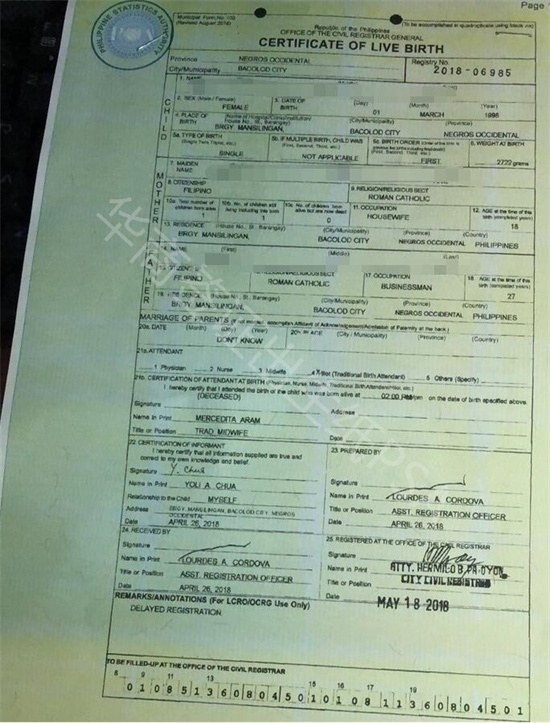 Page
Municipal Form No. 102
(Revised August 2016)
(To be accomplished in quadruplicate using black ink)
PHILIPPINE STATISTICS AUTHORITY
Republic of the Philippines
OFFICE OF THE CIVIL REGISTRAR GENERAL
CERTIFICATE OF LIVE BIRTH
Province NEGROS OCCIDENTAL
Registry No.
City/Municipality BACOLOD CITY
2018-06985
CHILD
1. NAME
2. SEX (Male / Female) 3. DATE OF BIRTH (Day) (Month) (Year)
FEMALE 01 MARCH
4. PLACE OF BIRTH (Name of Hospital/Clinic/Institution/ House No., St., Barangay) (City/Municipality) (Province)
BRGY. MANSILINGAN, BACOLOD CITY NEGROS OCCIDENTAL
5a. TYPE OF BIRTH 5b. IF MULTIPLE BIRTH, CHILD WAS 5c. BIRTH ORDER 6. WEIGHT AT BIRTH
SINGLE NOT APPLICABLE FIRST 2722 grams
MOTHER
7. MAIDEN NAME
8. CITIZENSHIP 9. RELIGION/RELIGIOUS SECT
FILIPINO ROMAN CATHOLIC
10a. Total number of children born alive 10b. No. of children still living including this birth 10c. No. of children born alive but are now dead 11. OCCUPATION 12. AGE at the time of this birth (completed years)
1 1 0 HOUSEWIFE 18
13. RESIDENCE (House No., St., Barangay) (City/Municipality) (Province) (Country)
BRGY. MANSILINGAN, BACOLOD CITY NEGROS OCCIDENTAL PHILIPPINES
FATHER
14. NAME (First) (Middle) (Last)
15. CITIZENSHIP 16. RELIGION/RELIGIOUS SECT 17. OCCUPATION 18. AGE at the time of this birth (completed years)
FILIPINO ROMAN CATHOLIC BUSINESSMAN 27
19. RESIDENCE (House No., St., Barangay) (City/Municipality) (Province) (Country)
BRGY. MANSILINGAN, BACOLOD CITY NEGROS OCCIDENTAL PHILIPPINES
MARRIAGE OF PARENTS (If not married, accomplish Affidavit of Acknowledgement/Admission of Paternity at the back.)
20a. DATE (Month) (Day) (Year) 20b. PLACE (City/Municipality) (Province) (Country)
DON'T KNOW
21a. ATTENDANT
1 Physician 2 Nurse 3 Midwife 4 X Hilot (Traditional Birth Attendant) 5 Others (Specify)
21b. CERTIFICATION OF ATTENDANT AT BIRTH (Physician, Nurse, Midwife, Traditional Birth Attendant/Hilot, etc.)
I hereby certify that I attended the birth of the child who was born alive at 02:00 PM am/pm on the date of birth specified above.
(DECEASED)
Signature Address
Name in Print MERCEDITA ARAM
Title or Position TRAD. MIDWIFE Date
22. CERTIFICATION OF INFORMANT
I hereby certify that all information supplied are true and
correct to my own knowledge and belief.
Signature Y. Chua
Name in Print YOLI A CHUA
Relationship to the Child MYSELF
Address BRGY. MANSILINGAN, BACOLOD CITY, NEGROS OCCIDENTAL
Date APRIL 26, 2018
23. PREPARED BY
Signature
Name in Print LOURDES A. CORDOVA
Title or Position ASST. REGISTRATION OFFICER
Date APRIL 26, 2018
24. RECEIVED BY
Signature
Name in Print LOURDES A. CORDOVA
Title or Position ASST. REGISTRATION OFFICER
Date APRIL 26, 2018
25. REGISTERED AT THE OFFICE OF THE CIVIL REGISTRAR
Signature
Name in Print ATTY. HERMILO B. PA-OYON
Title or Position CITY CIVIL REGISTRAR
Date MAY 18 2018
REMARKS/ANNOTATIONS (For LCRO/OCRG Use Only)
DELAYED REGISTRATION
TO BE FILLED-UP AT THE OFFICE OF THE CIVIL REGISTRAR
8 9 11 13 15 16 17 19
0 1 0 8 5 1 3 6 0 8 0 4 5 0 1 0 1 0 8 1 1 3 6 0 8 0 4 5 0 1